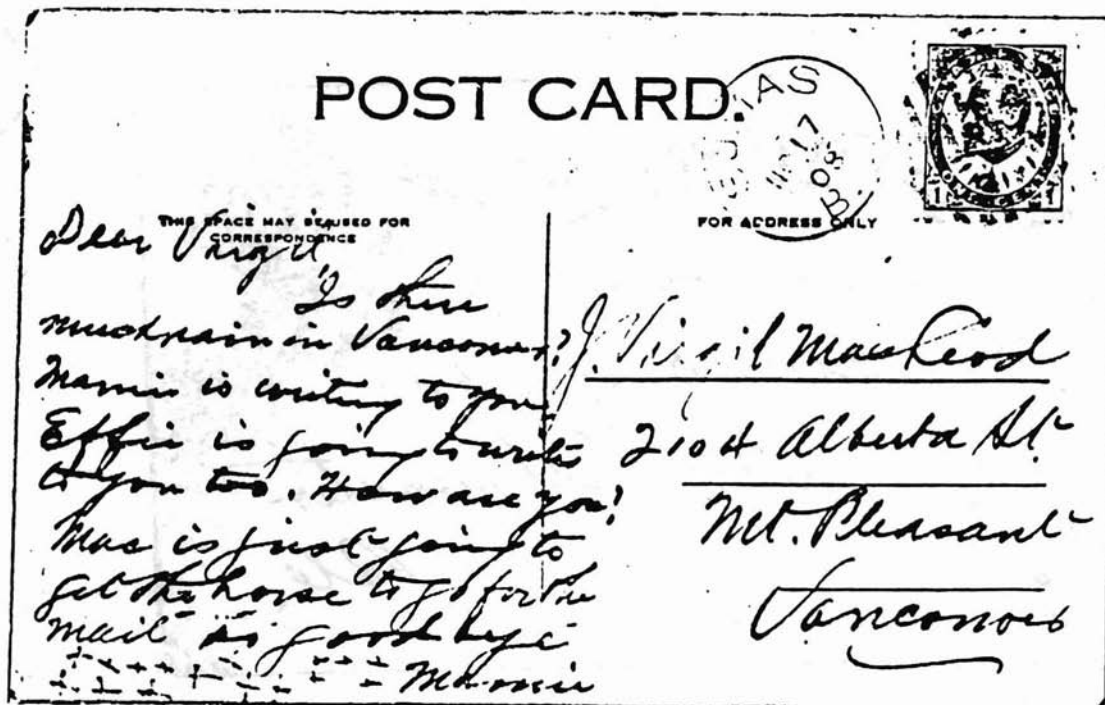 POST CARD.
17
08
B.
THIS SPACE MAY BE USED FOR
CORRESPONDENCE
FOR ADDRESS ONLY
Dear Virgil,
Is there
much rain in Vancouver?
Mamie is writing to you
Effie is going to write
to you too. How are you?
Mac is just going to
get the horse to go for the
mail so good bye
Mamie
J. Virgil MacLeod
2104 Alberta St
Mt. Pleasant
Vancouver
1 ONE CENT 1